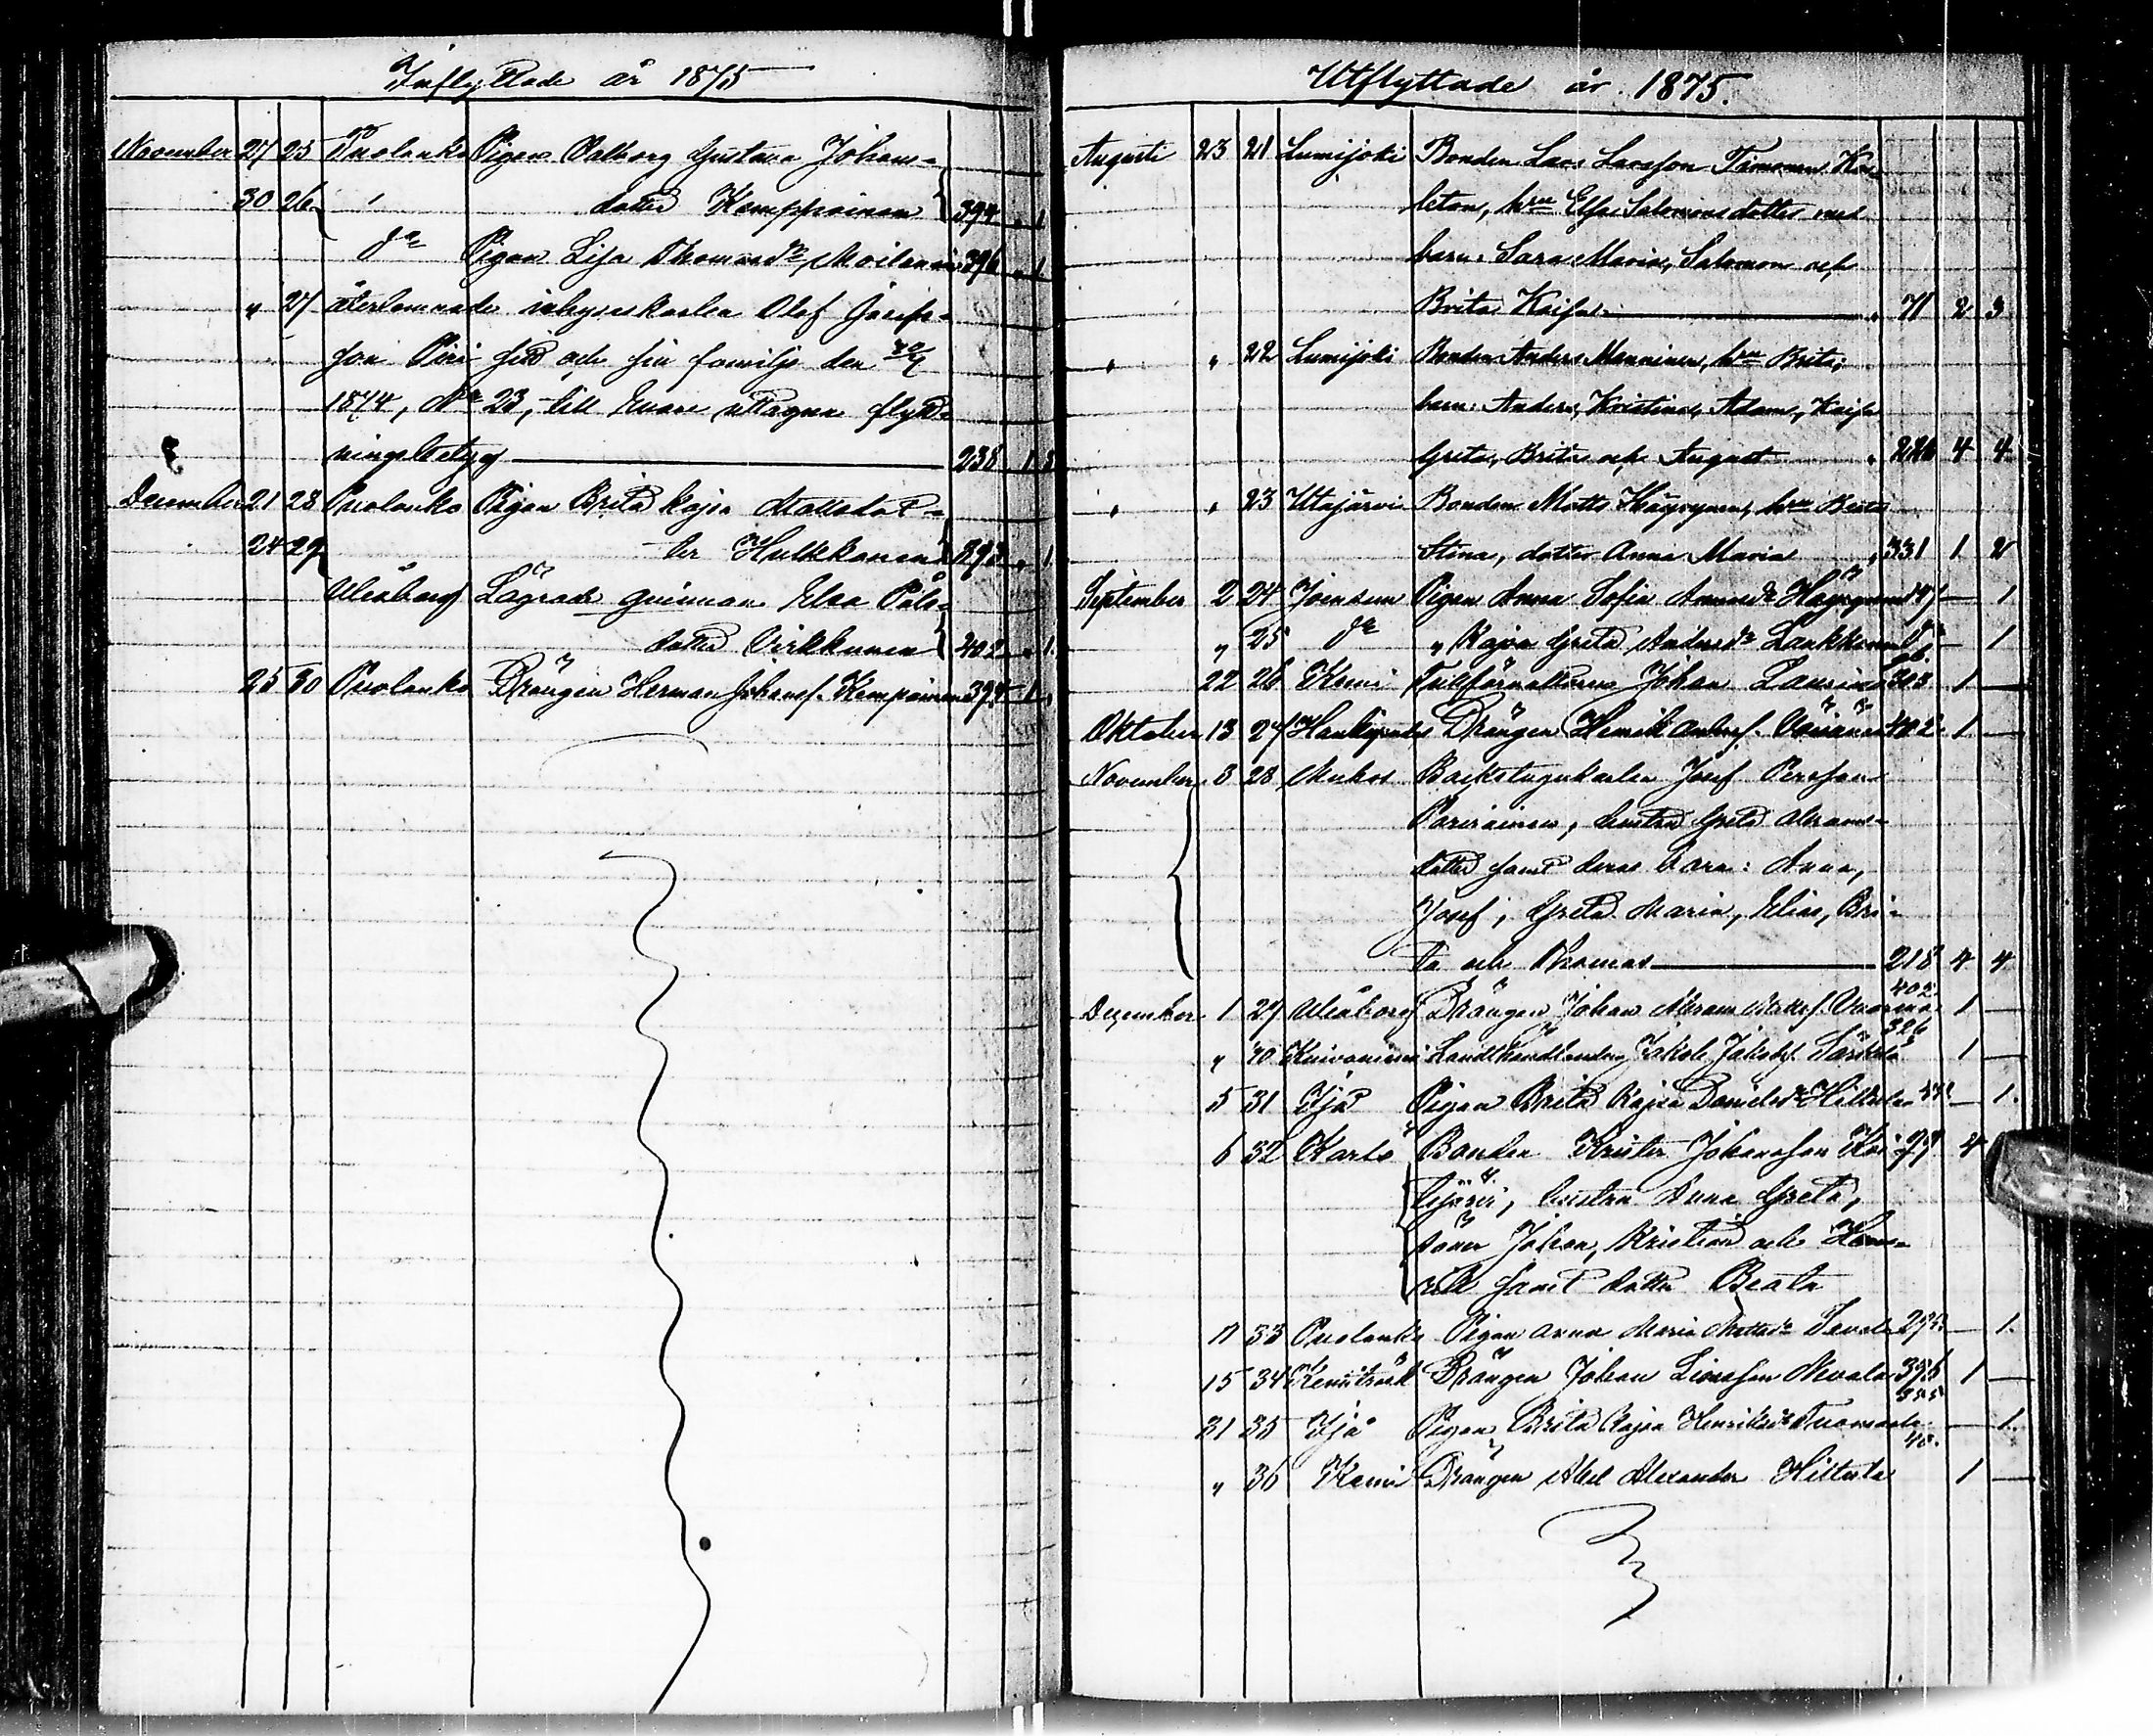 Inflyttade år 1875
November 27 25 Puolanko Pigan Valborg Gustava Johans-
30 26 " dotter Kemppainen 394 " 1
do Pigan Lisa Thomasdr Moilanen 396 " 1
" 27 återlemnade inhysekarlen Olof Josefs-
son Piri sitt och sin familjs den
1874, No 23, till Enare uttagna flytt-
ningsbetyg 238 1 3
December 21 28 Puolanko Pigan Brita Kajsa Mattsdot-
24 29 ter Hulkkonen 393 " 1
Uleåborg Lösgade qvinnan Elsa Påls-
dotter Virkkunen 402 " 1
25 30 Puolanko Drängen Herman Johanss. Kempainen 394 1 "
Utflyttade år 1875.
Augusti 23 21 Lumijoki Bonden Lars Larsson Timonen Ka-
leton, hru Elsa Salomonsdotter med
barn: Sara Maria, Salomon och
Brita Kaisa " 71 2 3
" " 22 Lumijoki Bonden Anders Manninen, hru Brita;
barn: Anders, Kristina, Adam, Kaisa
Greta, Brita och August " 226 4 4
" " 23 Utajärvi Bonden Matts Häyrynen, hru Brita
Stina, dotter Anna Maria " 331 1 2
September 2 24 Joensuu Pigan Anna Sofia — 1
" 25 do " Kajsa Greta Andersdr Laukkanen — 1
22 26 Kemi Tullförvaltaren Johan 303 1 —
Oktober 13 27 Haukipudas Drängen Henrik Anderss. Väisänen 402 1 —
November 3 28 Muhos Backstugukarlen Josef Persson
Parviainen, hustru Greta Abrams-
dotter samt deras barn: Anna,
Josef, Greta Maria, Elias, Bri-
ta och Thomas 218 4 4
December 1 29 Uleåborg Drängen Johan Abram Mattss. 402 1 —
" 30 Kuivaniemi Landthandlanden Jakob Jakobss. Särkelä 326 1 —
5 31 Ijå Pigan Brita Kajsa Danielsdr Hiltula — 1.
6 32 Karlö Bonden Krister Johansson Koi- 4
tijärvi, hustrun Anna Greta,
söner Johan, Kristian och Hen-
rik samt dotter Beata
11 33 Puolanko Pigan Anna Maria Mattsdr — 1.
15 34 Kemiträsk Drängen Johan Nevala 1 —
21 35 Ijå Pigan Brita Kajsa Henriksdr Tuomaala — 1.
" 36 Kemi Drängen Abel Alexander Hiltula 40. 1 —